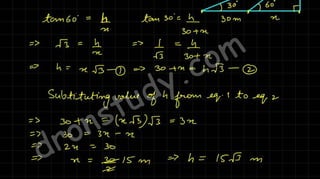 30° 60°
30m x
tan60° = h/x tan30° = h/30+x
⇒ √3 = h/x ⇒ 1/√3 = h/30+x
⇒ h = x√3 -① ⇒ 30+x = h√3 -②
Substituting value of h from eq.1 to eq.2
⇒ 30+x = (x√3)√3 = 3x
⇒ 30 = 3x - x
⇒ 2x = 30
⇒ x = 30/2 = 15 m ⇒ h = 15√3 m
dronstudy.com